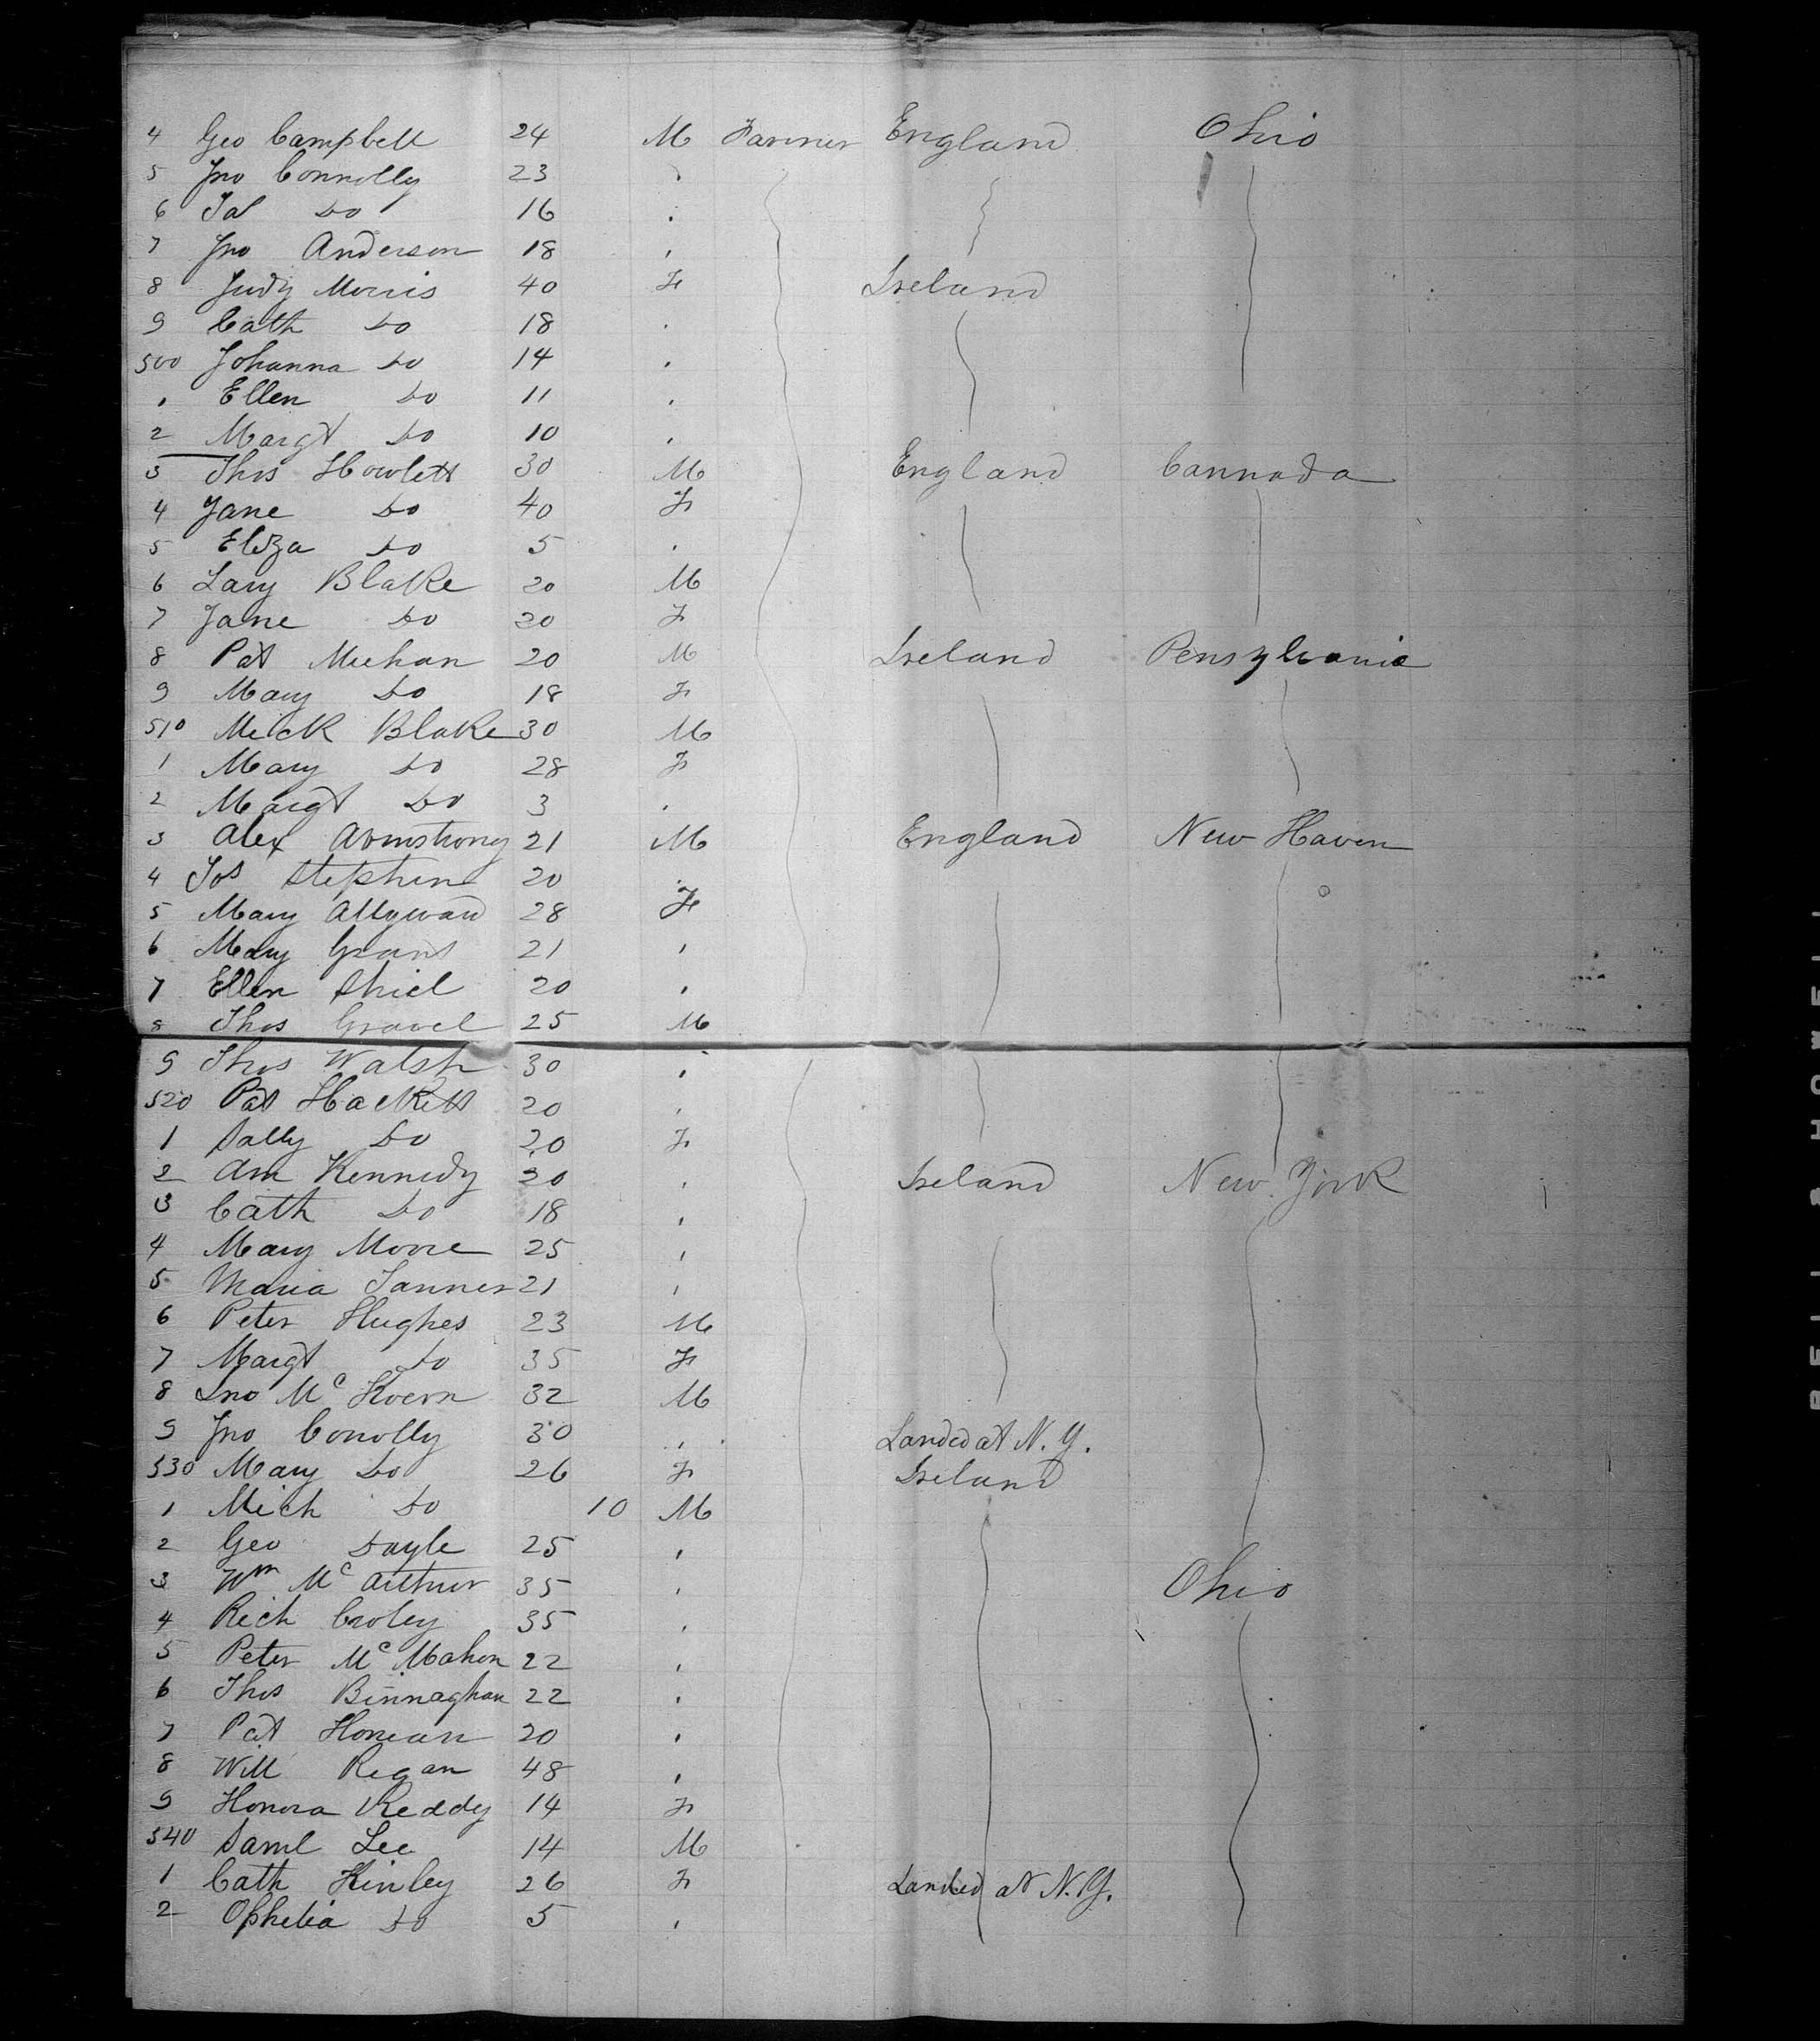 4 Geo Campbell 24 M Farmer England Ohio
5 Jno Connolly 23
6 Jas Do 16
7 Jno Anderson 18
8 Judy Morris 40 F Ireland
9 Cath Do 18
500 Johanna Do 14
1 Ellen Do 11
2 Margt Do 10
3 Thos Howlett 30 M England Cannada
4 Jane Do 40 F
5 Eliza Do 5
6 Lary Blake 20 M
7 Jane Do 20 F
8 Pat Meehan 20 M Ireland Pensylvania
9 Mary Do 18 F
510 Mick Blake 30 M
1 Mary Do 28 F
2 Margt Do 3
3 Alex Armstrong 21 M England New Haven
4 Jos Stephens 20
5 Mary Allyward 28 F
6 Mary Grant 21
7 Ellen Shiel 20
8 Thos Gravel 25 M
9 Thos Walsh 30
520 Pat Hackett 20
1 Sally Do 20 F
2 Ann Kennedy 30 Ireland New York
3 Cath Do 18
4 Mary Moore 25
5 Maria Tanner 21
6 Peter Hughes 23 M
7 Margt Do 35 F
8 Jno Mc 32 M
9 Jno Conolly 30 Landed at N.Y.
530 Mary Do 26 F Ireland
1 Mich Do 10 M
2 Geo Doyle 25
3 Wm Mc Arthur 35 Ohio
4 Rich Croley 35
5 Peter Mc Mahon 22
6 Thos Binnaghan 22
7 Pat Honean 20
8 Will Regan 48
9 Honora Reddy 14 F
540 Saml Lee 14 M
1 Cath Kinley 26 F Landed at N.Y.
2 Ophelia Do 5
BELL & HOWELL